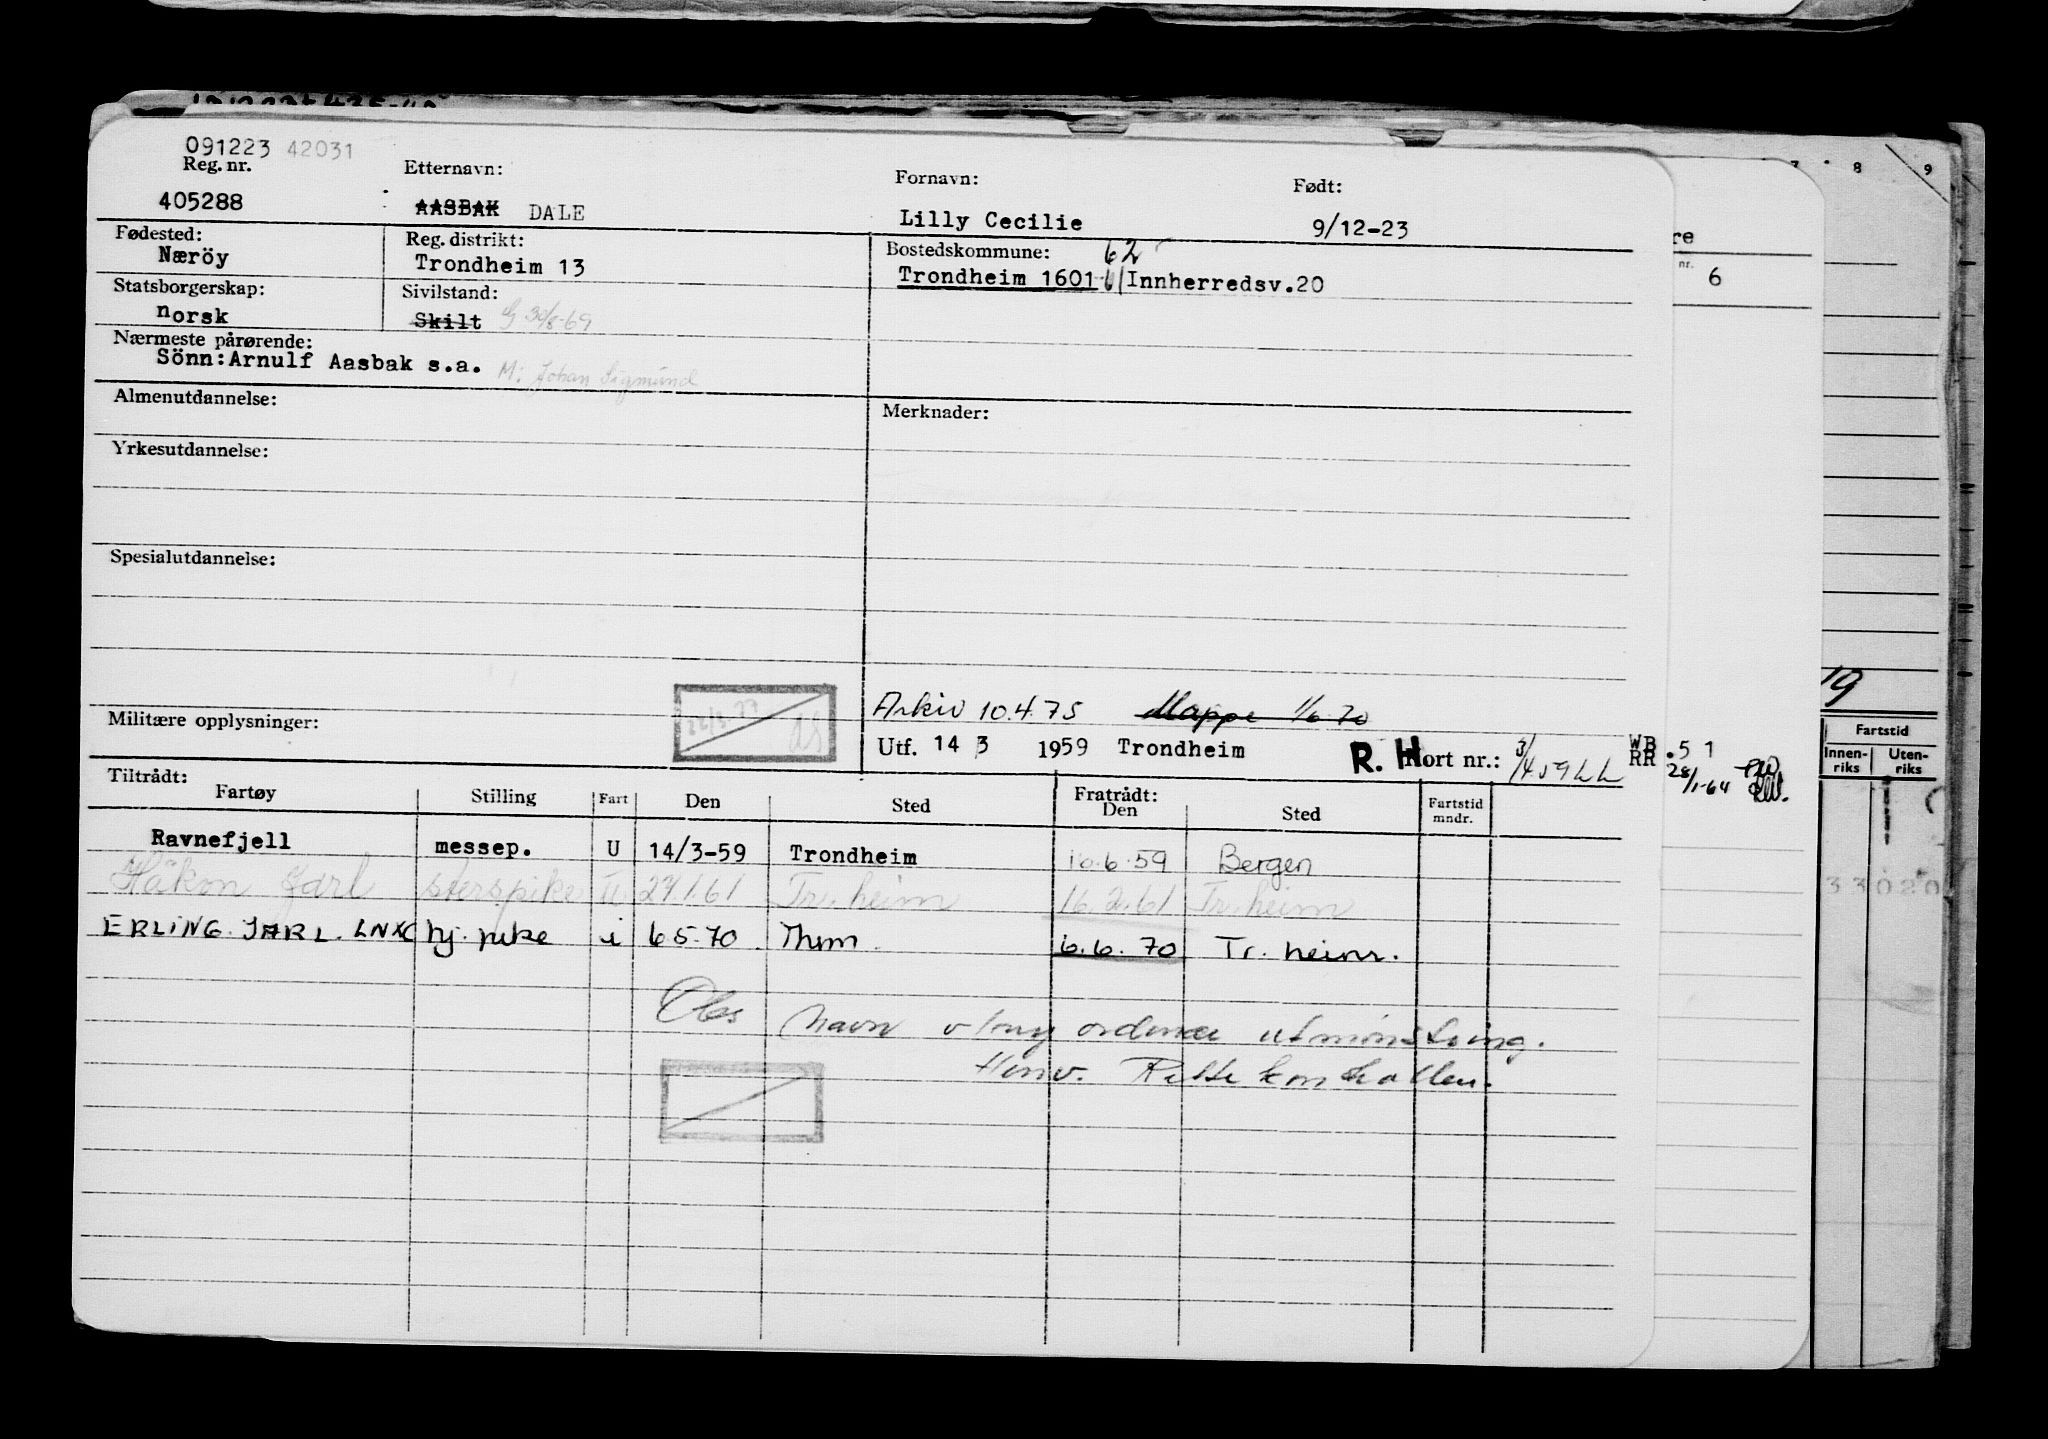 091223 42031
Reg. nr. Etternavn: Fornavn: Født:
405288 AASBAK DALE Lilly Cecilie 9/12-23
Fødested: Reg. distrikt: Bostedskommune: 62
Næröy Trondheim 13 Trondheim 1601 Innherredsv.20
Statsborgerskap: Sivilstand:
norsk Skilt G 30/8-69
Nærmeste pårørende:
Sönn: Arnulf Aasbak s.a. M: Johan Sigmund
Almenutdannelse: Merknader:
Yrkesutdannelse:
Spesialutdannelse:
Arkiv 10.4.75 Mappe 1/6 70
Militære opplysninger: Utf. 14 3 1959 Trondheim R. H Kort nr.:
Tiltrådt: Fratrådt:
Fartøy Stilling Fart Den Sted Den Sted Fartstid mndr.
Ravnefjell messep. U 14/3-59 Trondheim 10.6.59 Bergen
Håkon Jarl 27.1.61 Tr.heim 16.2.61 Tr.heim
ERLING JARL LNXC hj. pike i 6 5.70 Thm. 6.6.70 Tr. heim.
Obs Navn v/ny ordinær utmønstring.
Henv. Rullekontrollen.
7 8 9
re
nr. 6
19
Fartstid
Innen-
riks
Uten-
riks
WB
RR .51
28/1-64
33020